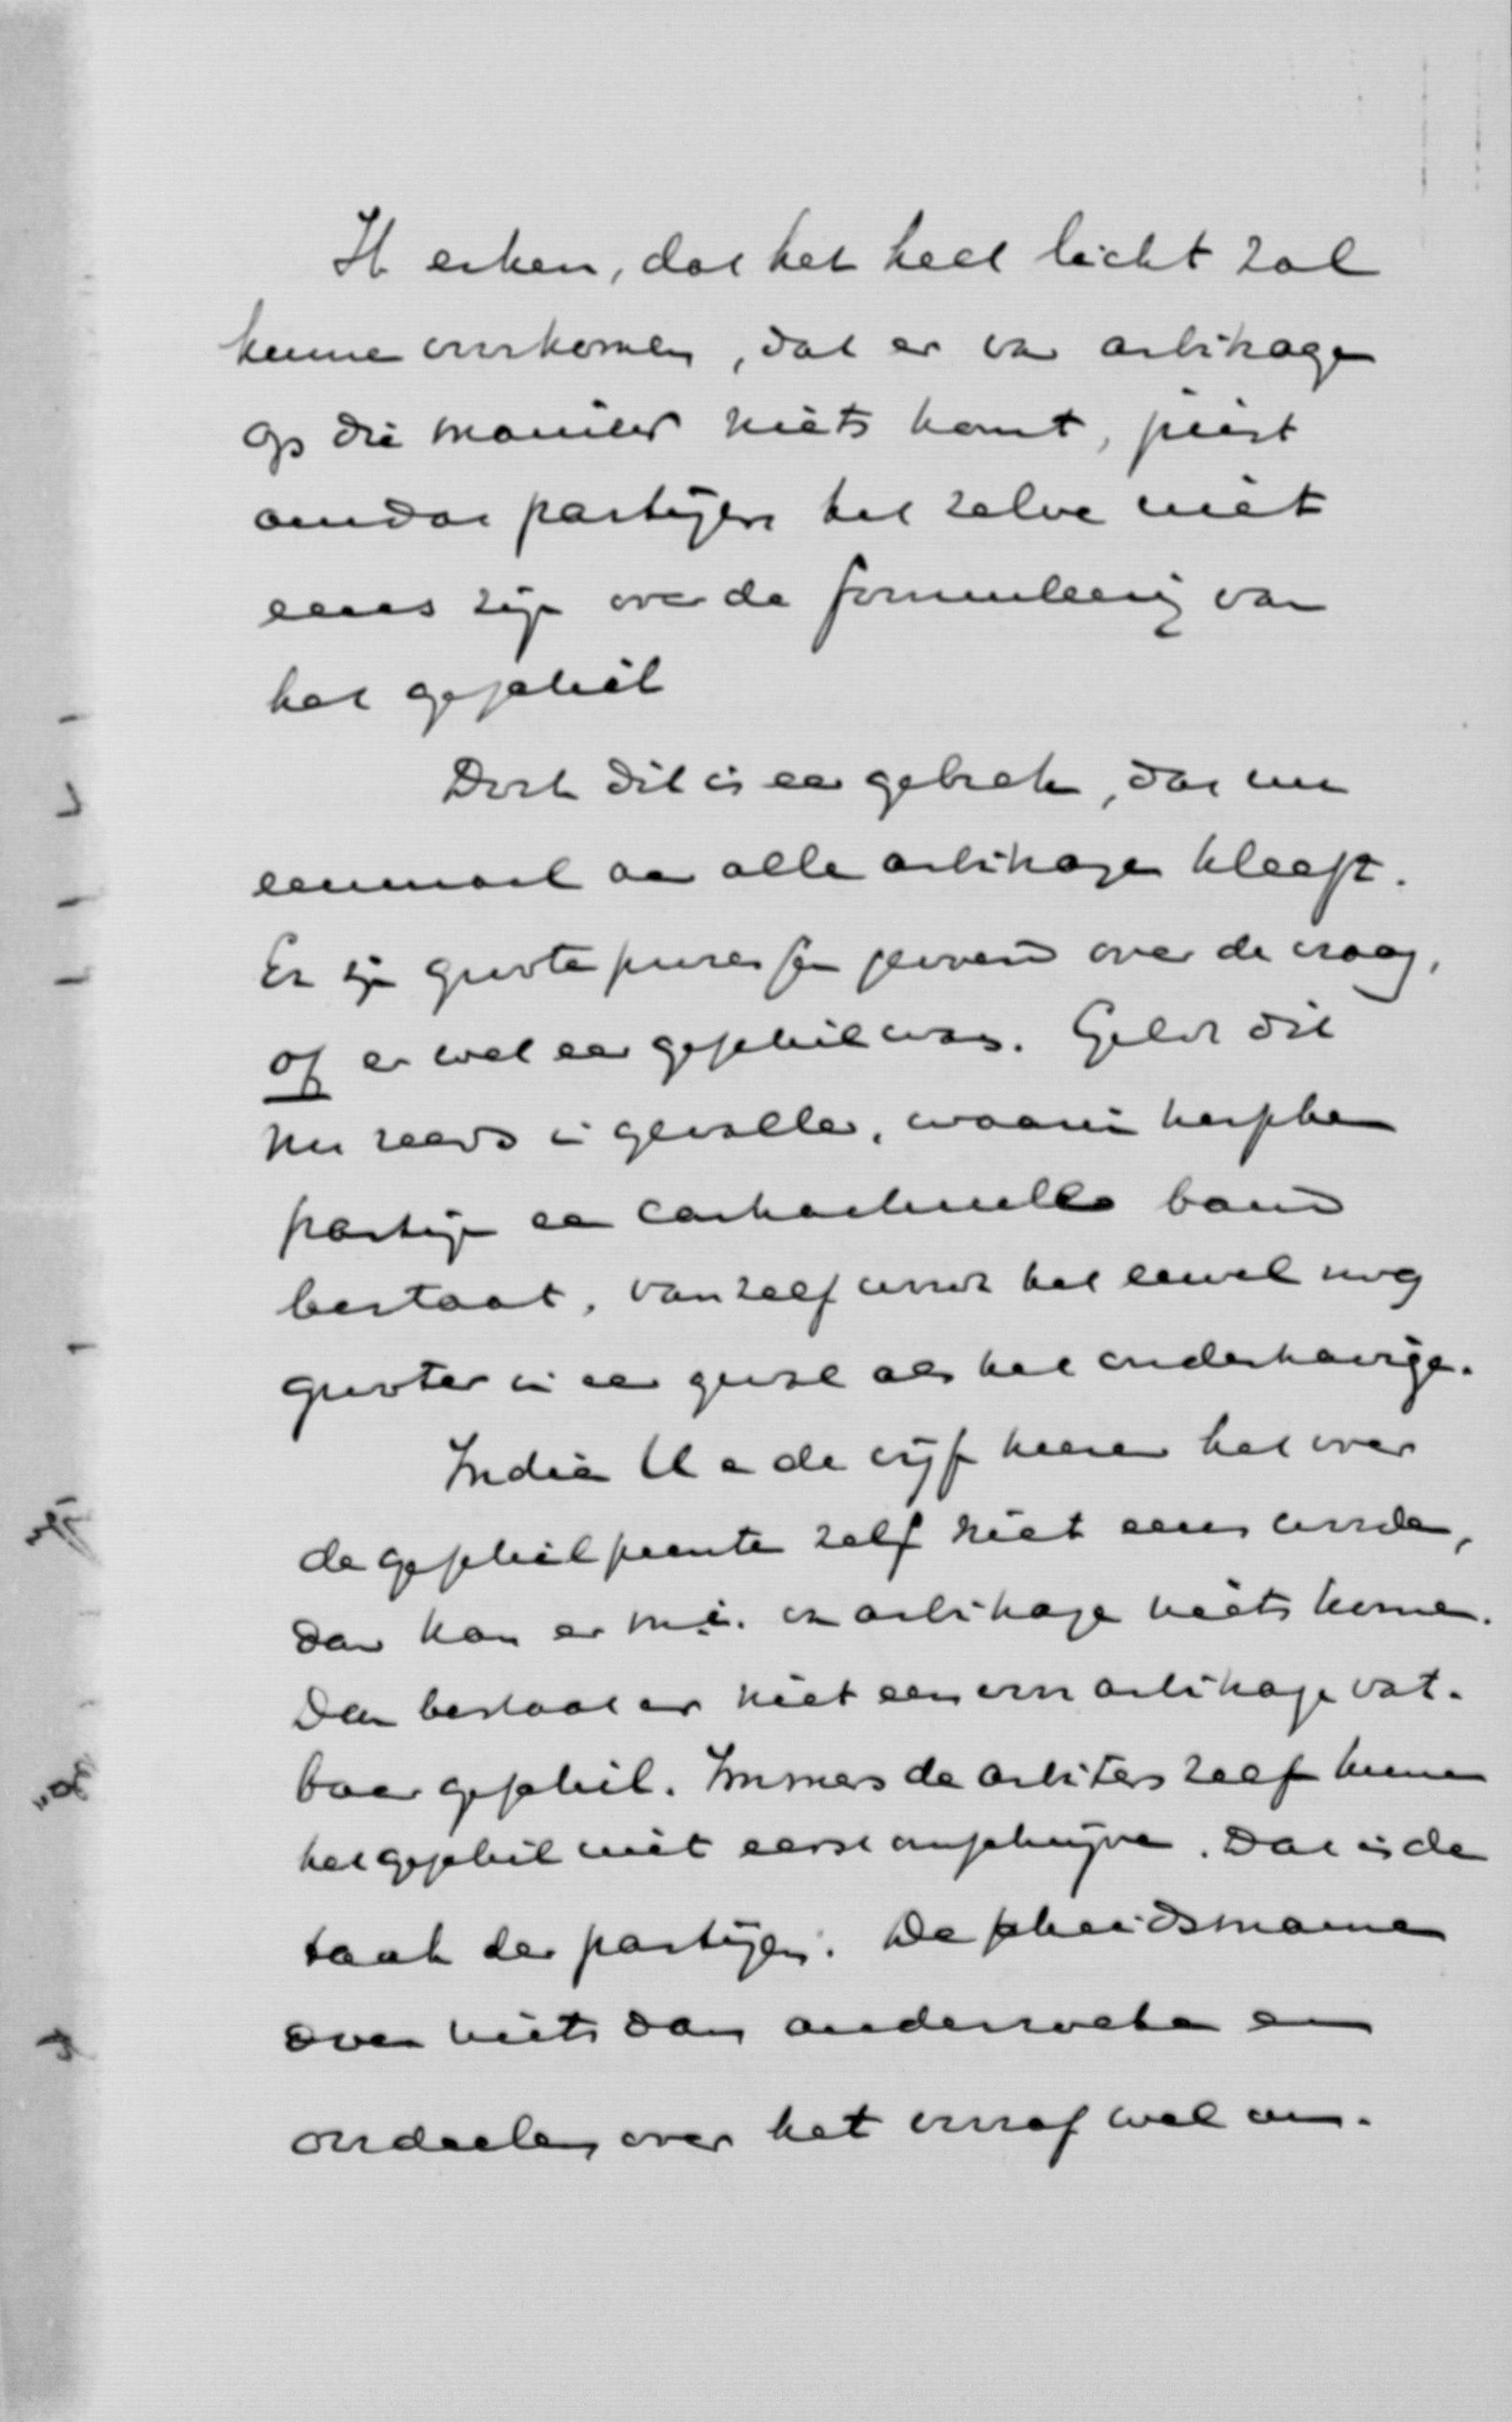 Ik erken, dat het heel licht zal
kunnen voorkomen, dat er van arbitrage
op die manier niets komt, juist
omdat partijen het zelve niet
eens zijn over de formuleering van
het geschil
Doch dit is een gebrek, dat nu
eenmaal aan alle arbitrage kleeft.
Er zijn groote processen gevoerd over de vraag,
of er wel een geschil was. Geldt dit
nu reeds in gevallen, waarin tusschen
partijen een contractueele band
bestaat, vanzelf wordt het euvel nog
grooter in een geval als het onderhavige.
Indien U en de vijf heeren het over
de geschilpunten zelf niet eens worden,
dan kan er m.i. van arbitrage niets komen.
Dan bestaat er niet een voor arbitrage vat-
baar geschil. Immers de arbiters zelf kunnen
het geschil niet eerst omschrijven. Dat is de
taak der partijen. De scheidsmannen
doen niets dan onderzoeken en
oordeelen over het